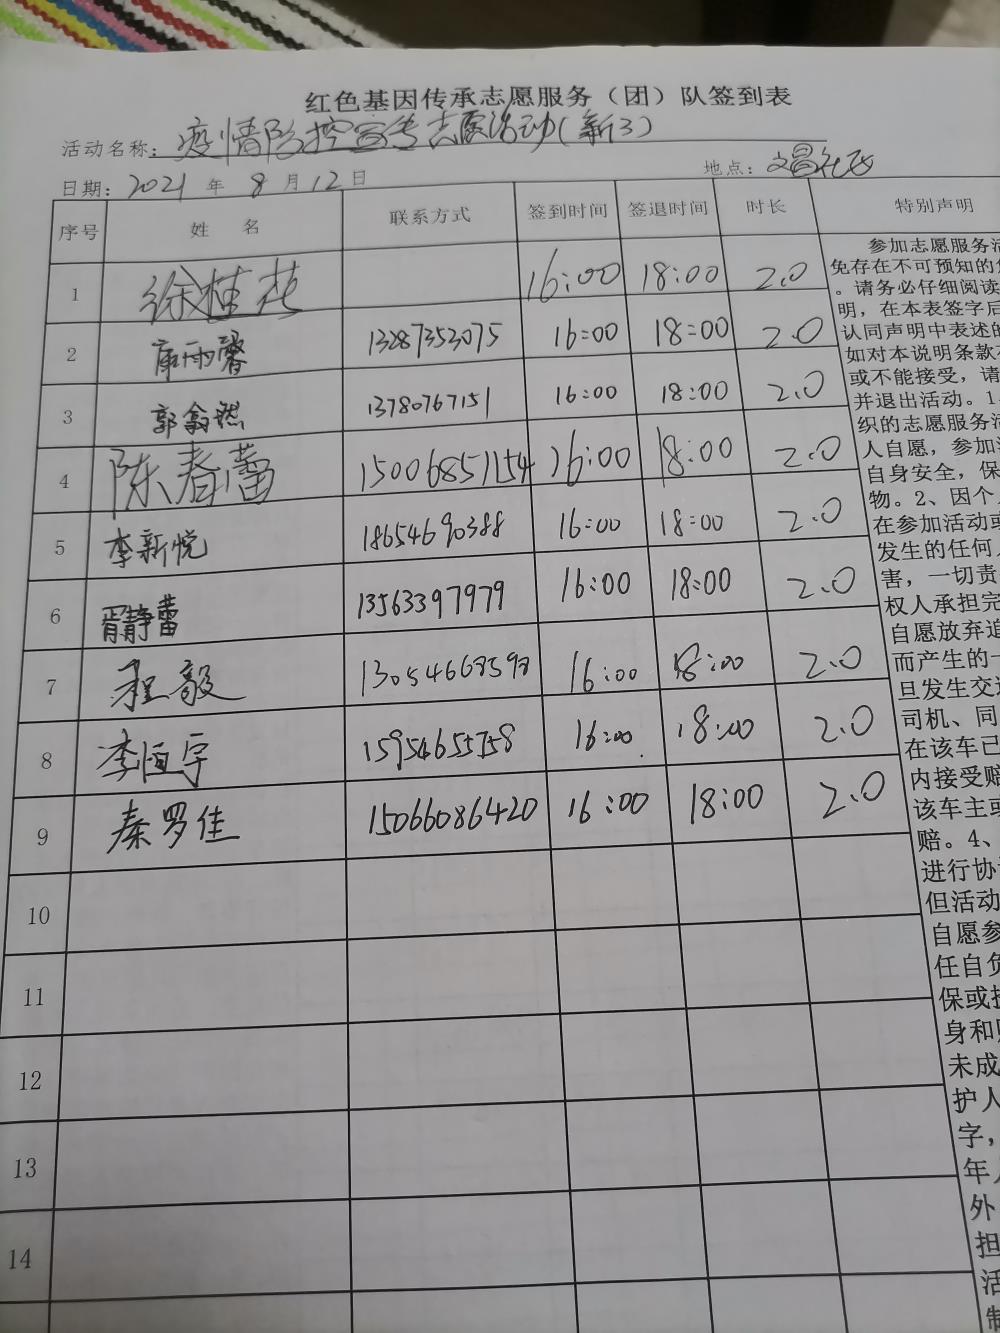 红色基因传承志愿服务（团）队签到表
活动名称：疫情防控宣传志愿活动（新3）
日期：2021年8月12日 地点：文昌社区
序号 姓名 联系方式 签到时间 签退时间 时长 特别声明
1 徐桂花 16:00 18:00 2.0
2 雨馨 13287353075 16:00 18:00 2.0
3 郭 然 13780767151 16:00 18:00 2.0
4 陈春蕾 15006851154 16:00 18:00 2.0
5 李新悦 18654690388 16:00 18:00 2.0
6 静蕾 13563397979 16:00 18:00 2.0
7 程毅 16:00 18:00 2.0
8 李恒宇 15954655758 16:00 18:00 2.0
9 秦罗佳 15066086420 16:00 18:00 2.0
10
11
12
13
14
参加志愿服务活
免存在不可预知的
。请务必仔细阅读
明，在本表签字后
认同声明中表述的
如对本说明条款
或不能接受，请
并退出活动。1
织的志愿服务活
人自愿，参加
自身安全，保
物。2、因个
在参加活动或
发生的任何
害，一切责
权人承担完
自愿放弃追
而产生的一
旦发生交通
司机、同
在该车已
内接受赔
该车主或
赔。4、
进行协
但活动
自愿参
任自负
保或
身和
未成
护人
字，
年
外
担
活
制